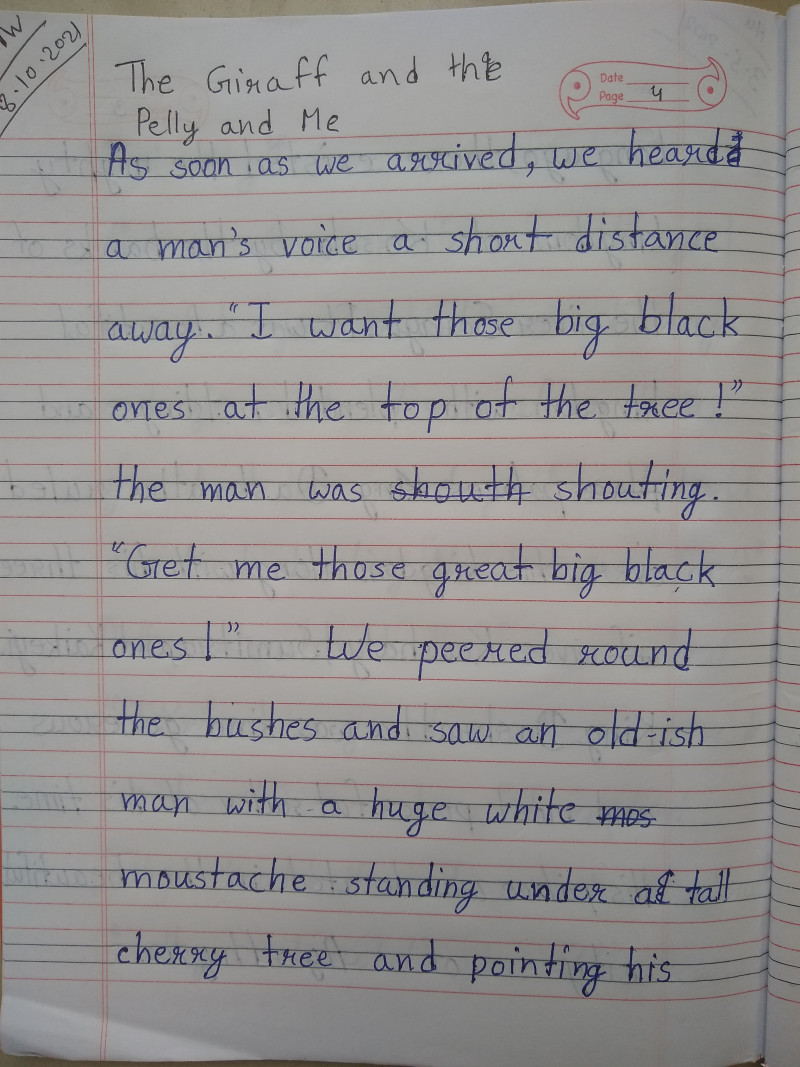 W
8.10.2021
The Giraff and the
Pelly and Me
Date
Page 4
As soon as we arrived, we heard
a man's voice a short distance
away. "I want those big black
ones at the top of the tree!"
the man was shouth shouting.
"Get me those great big black
ones!" We peered round
the bushes and saw an old-ish
man with a huge white mos
moustache standing under a tall
cherry tree and pointing his